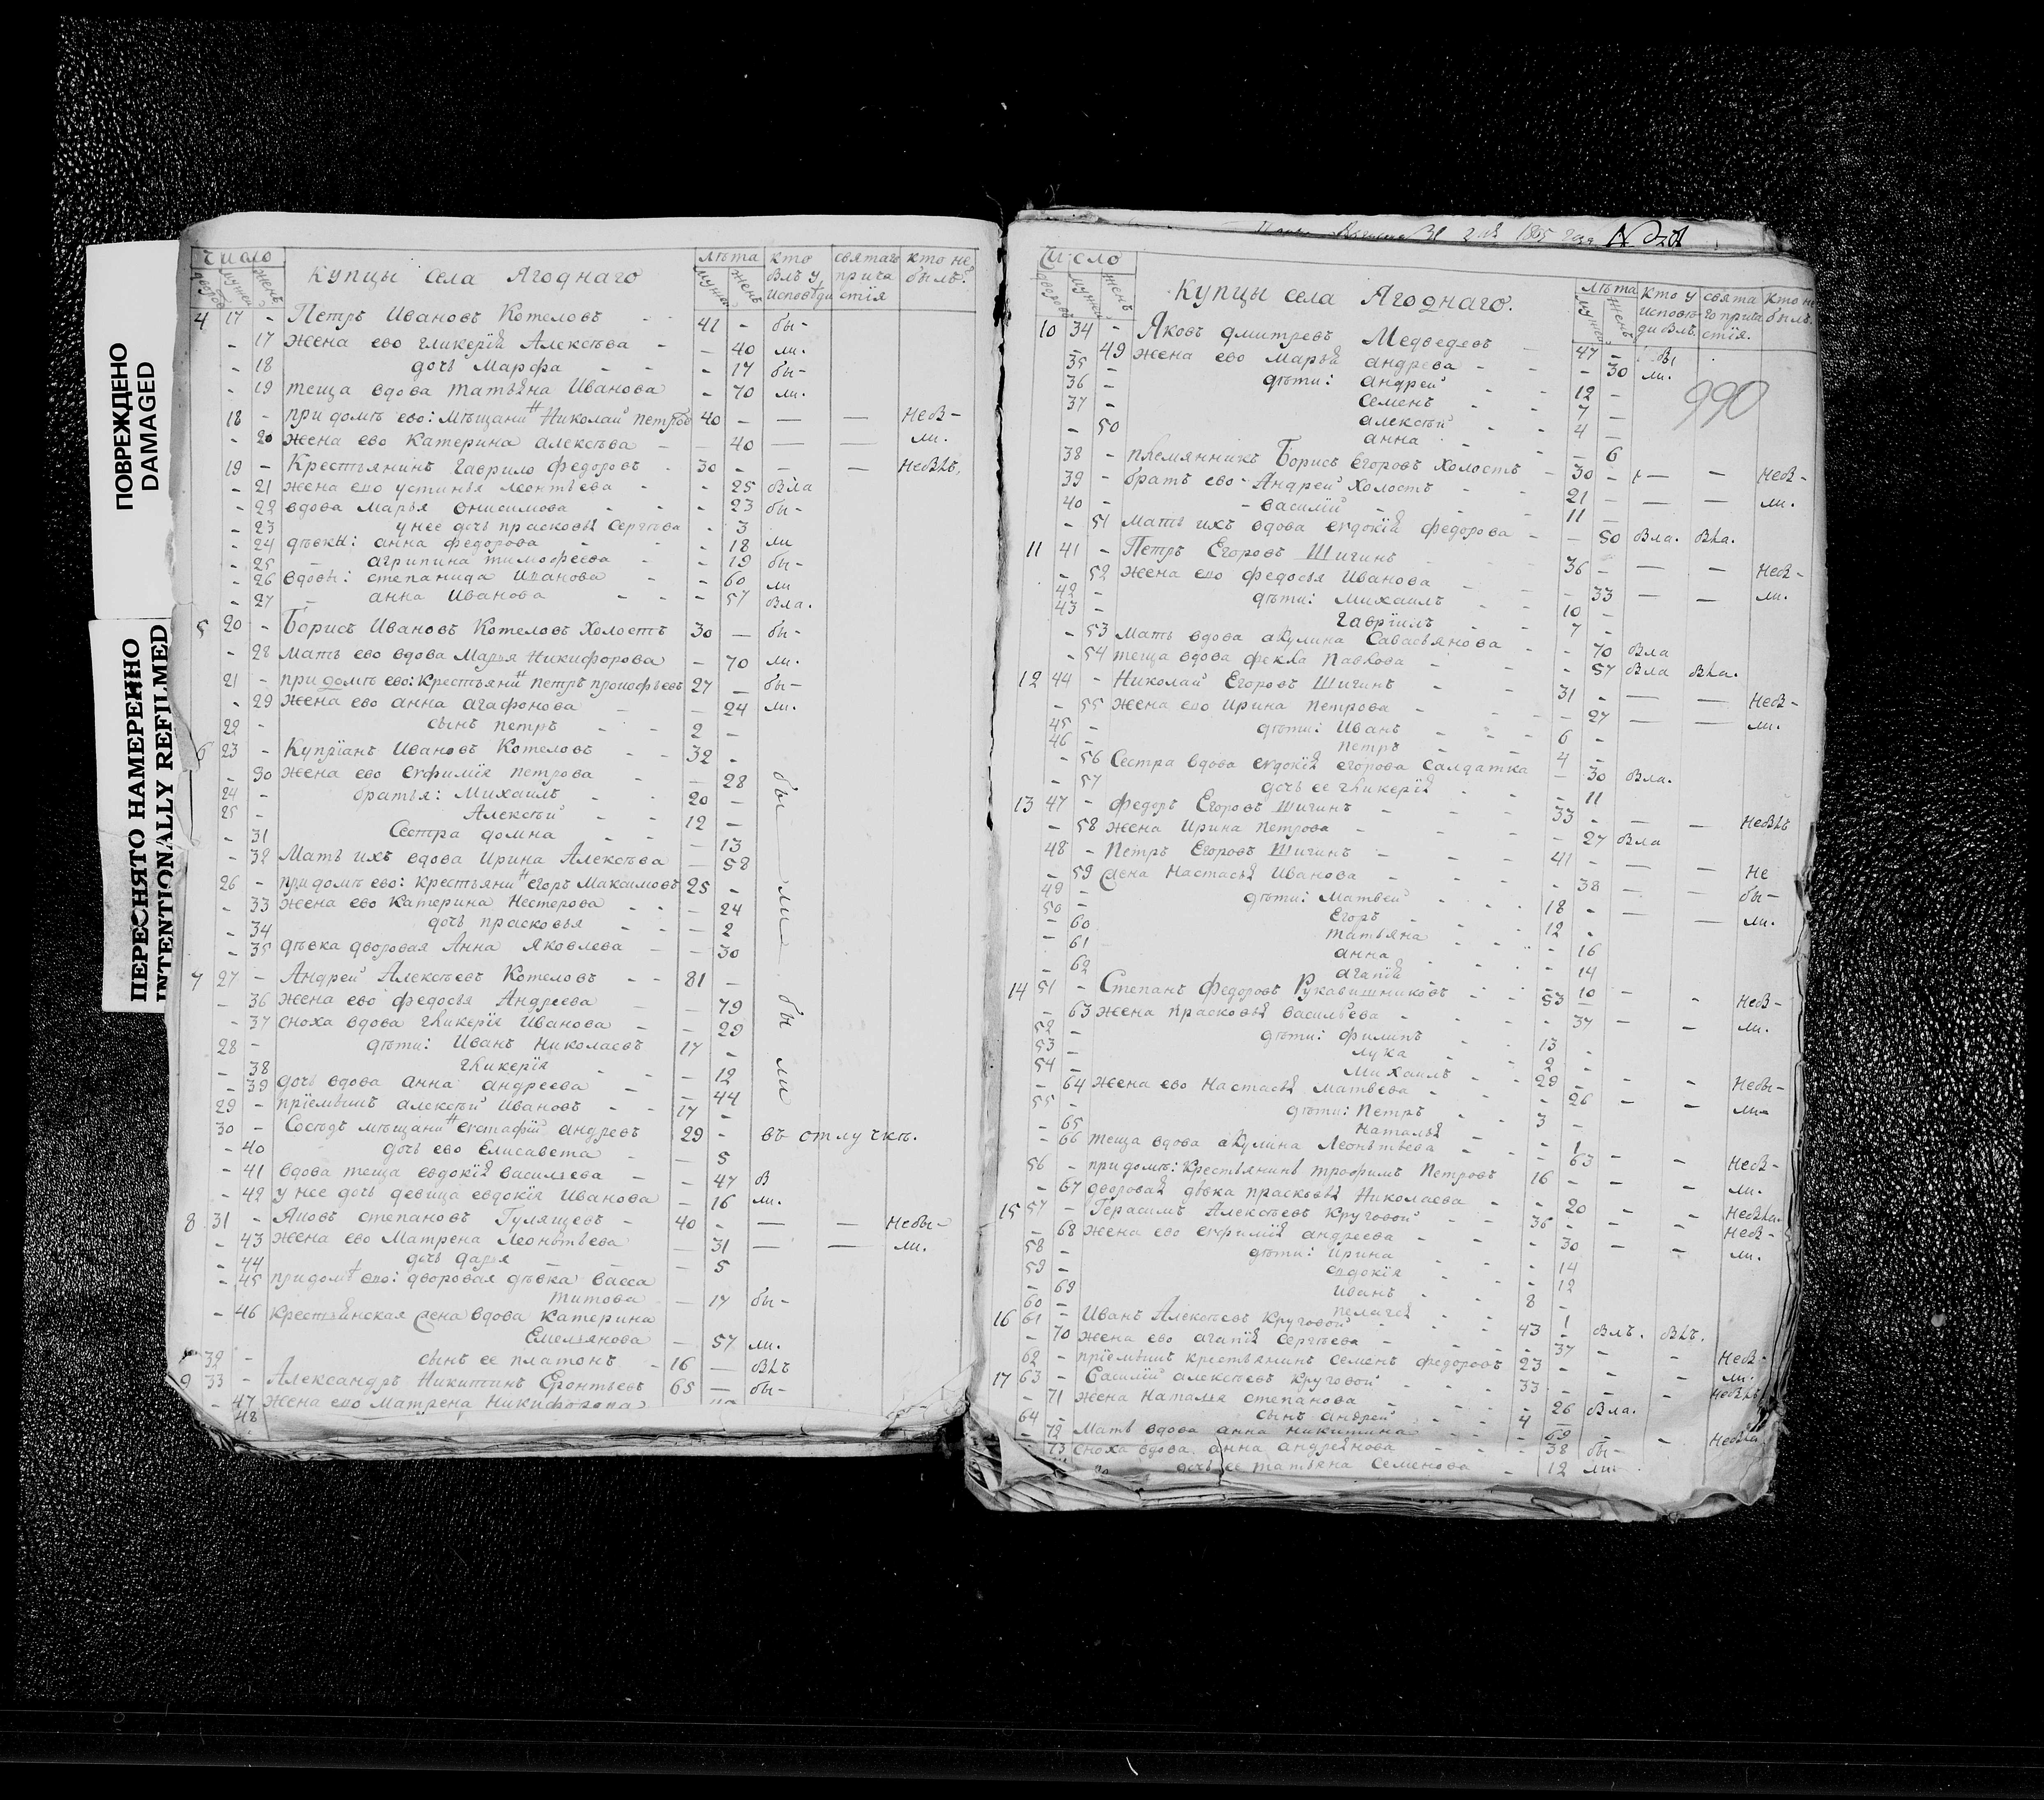 ПОВРЕЖДЕНО
DAMAGED
ПЕРЕСНЯТО НАМЕРЕННО
INTENTIONALLY REFILMED
Число Купцы села Ягоднаго лѣта кто
мужеи женъ былъ у исповѣди святаго причастія кто не былъ.
4 17 - Петръ Ивановъ Котеловъ - 41 - бы-
- 17 жена ево гликерїя Алексѣва - - 40 ли.
- 18 дочь Марфа - - - 17 бы-
- 19 теща вдова татьяна Иванова - 70 ли.
18 - при домѣ ево: мѣщанинъ Николай петровъ 40 - — — Небы-
- 20 жена ево катерина алексѣва - - 40 — — ли.
19 - Крестьянинъ Гаврило федоровъ - 30 - — — Небылъ.
- 21 жена ево устинья леонтьева - - 25 была
- 22 вдова марья Онисимова - - 23 бы-
- 23 у нее дочь прасковья Сергѣва - 3
- 24 дѣвки: анна федорова - - 18 ли
- 25 - агрипина тимофеева - - 19 бы-
- 26 вдовы: степанида Иванова - - 60 ли
- 27 - анна Иванова - - 57 была.
5 20 - Борисъ Ивановъ Котеловъ Холостъ 30 — бы-
- 28 мать ево вдова Марья Никифорова - 70 ли.
21 - при домѣ ево: крестьянинъ петръ прокофьевъ 27 — бы-
- 29 жена ево анна агафонова - - 24 ли.
22 - сынъ петръ - - 2 -
6 23 - Купрїанъ Ивановъ Котеловъ - - 32 -
- 30 жена ево евфимїя петрова - - 28 бы
24 - братья: михаилъ - - 20 -
25 - Алексѣй - - 12 -
- 31 Сестра домна - - - 13
- 32 Мать ихъ вдова Ирина Алексѣва — 58
26 - при домѣ ево: крестьянинъ егоръ Максимовъ 25 - ли
- 33 жена ево катерина Нестерова - - - 24
- 34 дочь прасковья - - - 2
- 35 дѣвка дворовая Анна Яковлева - 30
7 27 - Андрей Алексѣевъ Котеловъ - - 81 -
- 36 жена ево федосья Андреева - - 79 бы
- 37 сноха вдова гликерїя Иванова - - 29
28 - дѣти: Иванъ Николаевъ 17 -
- 38 гликерїя - - - 12 ли
- 39 дочь вдова анна андреева - - 44
29 - прїемышъ алексѣй Ивановъ - - 17 -
30 - Сосѣдъ мѣщанинъ евстафїй андревъ 29 - въ отлучкѣ.
- 40 дочь ево Елисавета - - 5
- 41 вдова теща евдокїя васильева - - 47 б
- 42 у нее дочь девица евдокїя Иванова - 16 ли.
8 31 - Яковъ степановъ Гулящевъ - 40 - — — Небы-
- 43 жена ево Матрена Леонтьева — 31 — — ли.
- 44 дочь дарья - - - 5
- 45 при домѣ ево: дворовая дѣвка васса
титова — 17 бы-
- 46 крестьянская жена вдова катерина
Емельянова — 57 ли.
32 - сынъ ее платонъ - 16 — былъ
9 33 - Александръ Никитинъ 65 — бы-
- 47 жена ево матрена Никифорова
48
Число Купцы села Ягоднаго. лѣта кто у исповѣди былъ святаго причастїя. кто не былъ.
990
10 34 - Яковъ дмитревъ Медведевъ - 47 -
- 49 жена ево Марья андрева - - - 30 ли.
35 - дѣти: андрей - - 12 -
36 - семенъ - - 7 -
37 - алексѣй - - 4 -
- 50 анна - - - 6
38 - племянникъ Борисъ Егоровъ холостъ - 30 - — — Небы-
39 - братъ ево - Андрей холостъ - - 21 - — — ли.
40 - василїй - - 11 -
- 51 мать ихъ вдова евдокїя федорова - - 50 была. была.
11 41 - Петръ Егоровъ Шигинъ - 36 - — — Небы-
- 52 жена ево федосья Иванова - - 33 — — ли.
42 - дѣти: михаилъ - - 10 -
43 - гаврїилъ - - 7 -
- 53 мать вдова акулина Савасьянова - - 70 была
- 54 теща вдова фекла павлова - - 57 была была.
12 44 - Николай Егоровъ Шигинъ - - 31 - — — Небы-
- 55 жена ево ирина петрова - - - 27 — — ли.
45 - дѣти: Иванъ - - 6 -
46 - петръ - - 4 -
- 56 Сестра вдова евдокїя егорова салдатка - 30 была.
- 57 дочь ее гликерїя - - 11
13 47 - федоръ Егоровъ Шигинъ - - 33 - — — Небылъ
- 58 жена ирина петрова - - - 27 была
48 - Петръ Егоровъ Шигинъ - - 41 - — — Не
- 59 жена Настасья Иванова - - - 38 — — бы-
49 - дѣти: матвей - - 18 - — — ли.
50 - Егоръ - - 12 -
- 60 татьяна - - - 16
- 61 анна - - - 14
- 62 агапїя - - - 10
14 51 - Степанъ федоровъ Рукавишниковъ - - 53 - - - Небы-
- 63 жена прасковья васильева - - - 37 - - ли.
52 - дѣти: филипъ - - 13 -
53 - лука - - 2 -
54 - михаилъ - - 29 - - - Небы-
- 64 жена ево настасья матвева - - - 26 - - ли-
55 - дѣти: Петръ - - 3 -
- 65 наталья - - - 1
- 66 теща вдова акулина Леонтьева - - 63 - - Небы-
56 - при домѣ: крестьянинъ трофимъ Петровъ 16 - - - ли.
- 67 дворовая дѣвка прасковья Николаева - - 20 - - Небыла.
15 57 - Герасимъ Алексѣевъ круговой - - 36 - - - Небы-
- 68 жена ево евфимїя андреева - - - 30 - - ли.
58 - дѣти: ирина - - - 14
59 - евдокїя - - - 12
- 69 иванъ - - 8 -
60 - пелагея - - - 1
16 61 - Иванъ Алексѣевъ круговой - - 43 - былъ. былъ.
- 70 жена ево агапїя Сергѣева - - - 37 - - Небы-
62 - прїемышъ крестьянинъ семенъ федоровъ 23 - - - ли.
17 63 - Василїй алексѣевъ круговой - - 33 - - - Небылъ
- 71 жена наталья степанова - - - 26 была.
64 - сынъ андрей - - 4 -
- 72 мать вдова анна никитина - - - 69 - - Небыла
- 73 сноха вдова анна андреянова - - - 38 бы-
дочь ее татьяна Семенова - 12 ли-